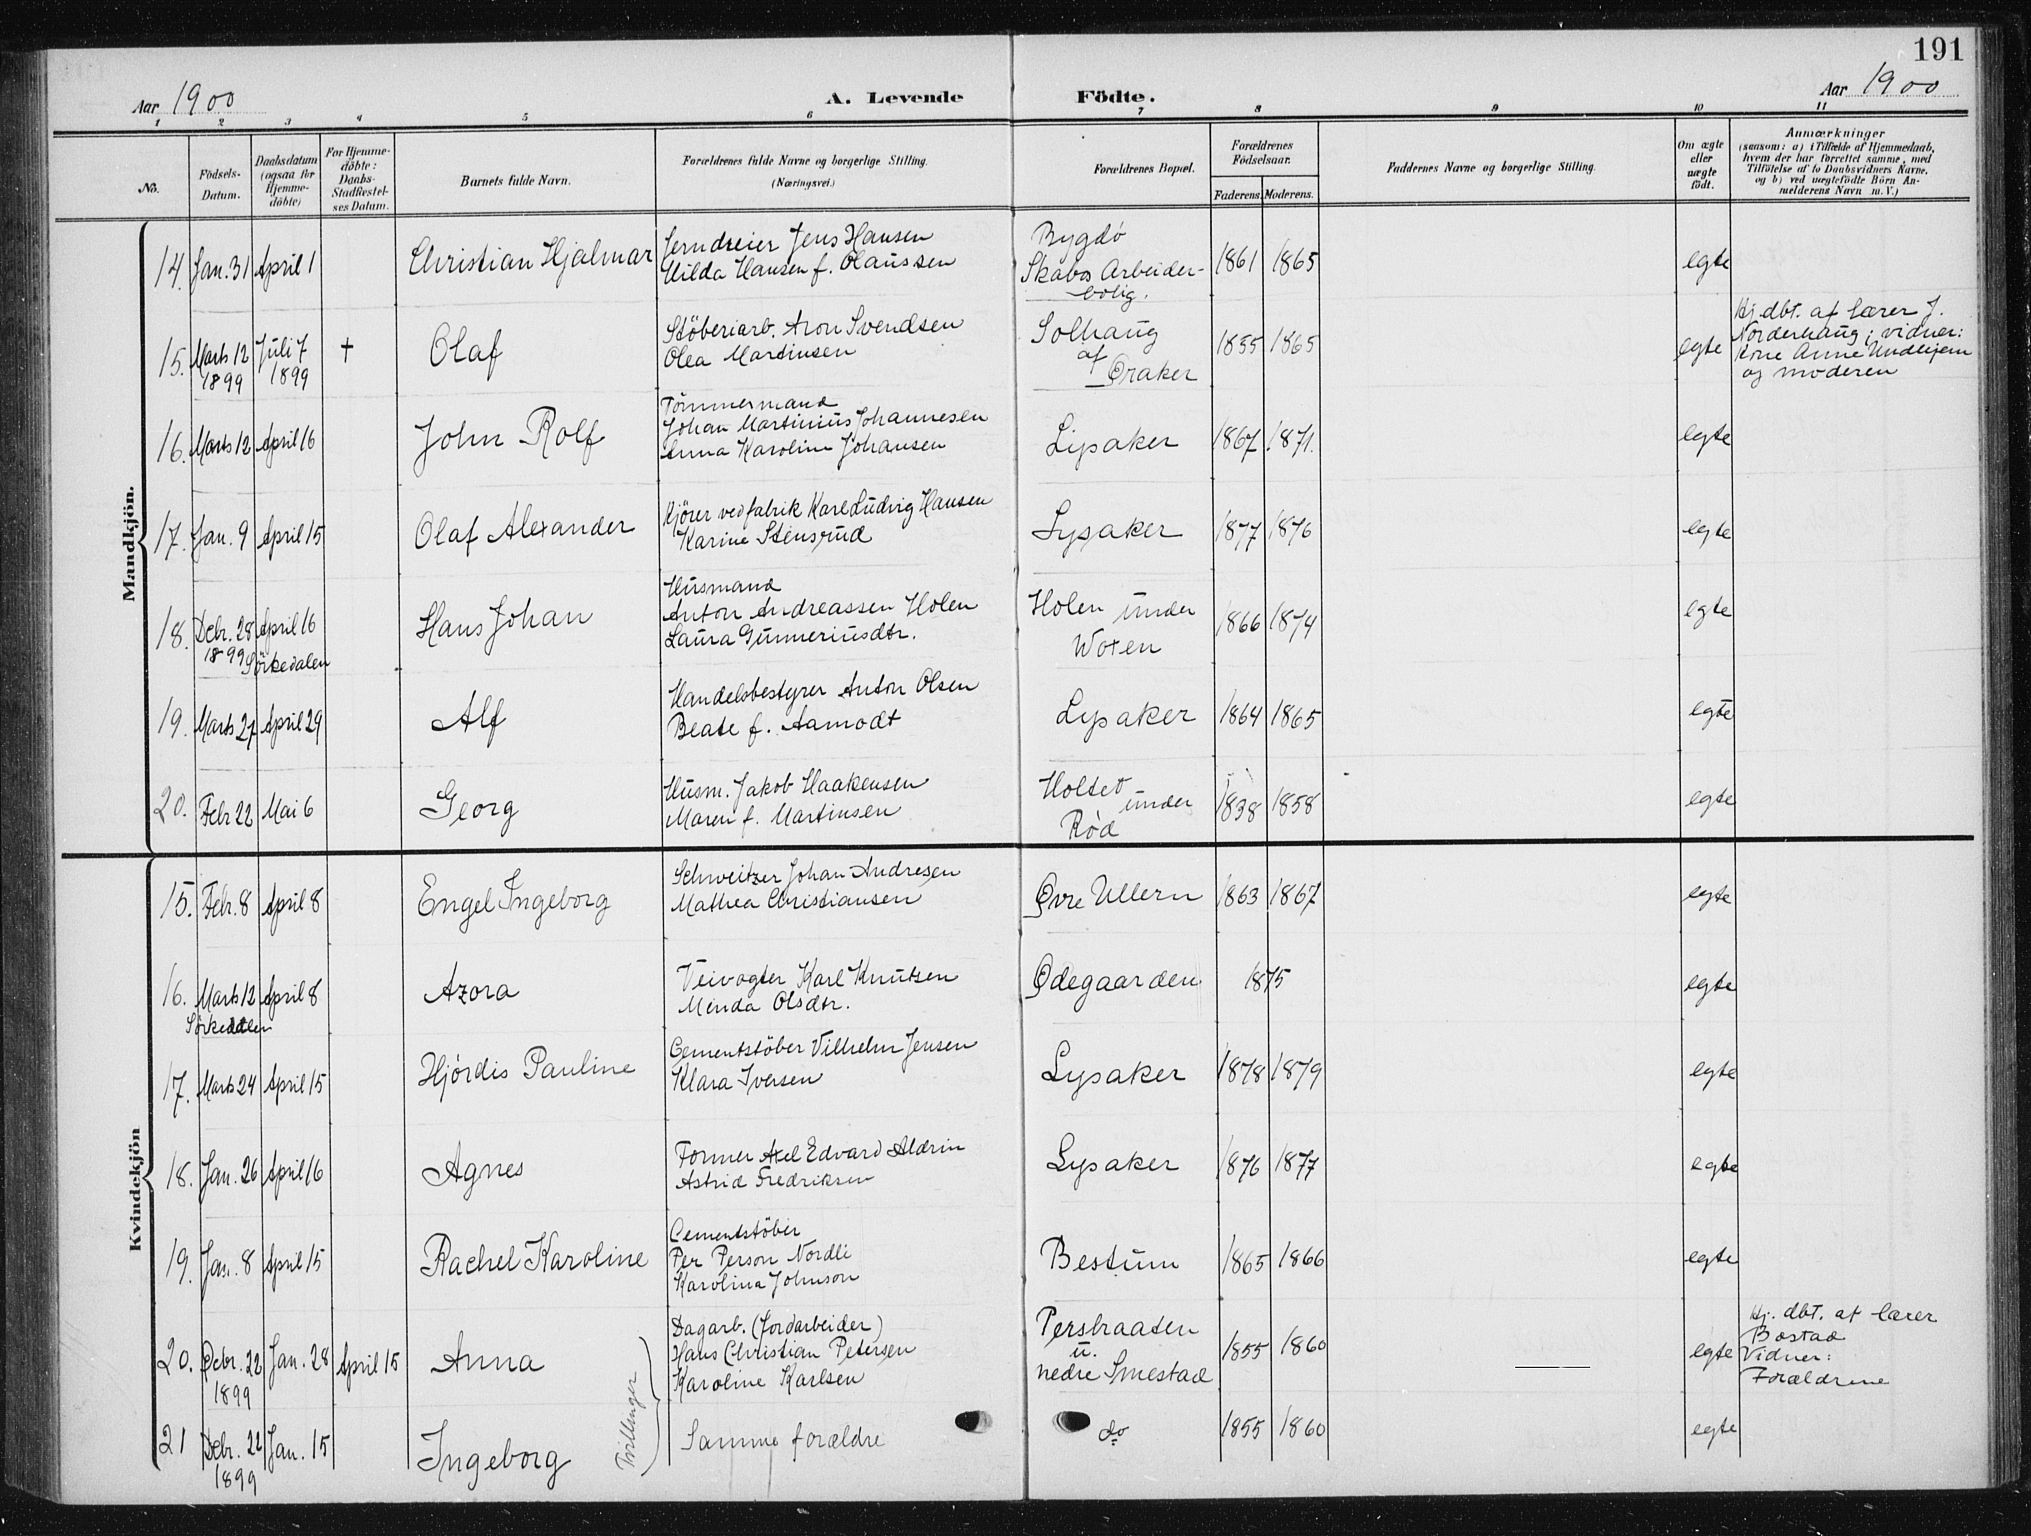 191
Aar 1900
A. Levende Födte.
Aar 1900
1 2 3 4 5 6 7 8 9 10 11
No.
Födsels-
Datum.
Daabsdatum
(ogsaa for
Hjemme-
döbte)
For Hjemme-
döbte:
Daabs-
Stadfestel-
ses Datum.
Barnets fulde Navn.
Forældrenes fulde Navne og borgerlige Stilling.
(Næringsvei.)
Forældrenes Bopæl.
Forældrenes
Födselsaar.
Faderens. Moderens.
Faddernes Navne og borgerlige Stilling.
Om ægte
eller
uægte
födt.
Anmærkninger
(saasom: a) i Tilfælde af Hjemmedaab,
hvem der har forrettet samme, med
Tilföielse af to Daabsvidners Navne,
og b) ved uægtefödte Börn An-
melderens Navn m. V.)
Mandkjön.
14. Jan. 31 April 1 Christian Hjalmar
Jerndreier Jens Hansen
Hilda Hansen f. Olaussen
Bygdö
Skabos Arbeider-
bolig.
1861 1865 egte
15. Marts 12
1899
Juli 7
1899
+ Olaf
Stöberiarb. Aron Svendsen
Olea Martinsen
Solhaug
af
Øraker
1855 1865 egte
Hj. dbt. af lærer J.
Norderhaug; vidner:
Kone Anne Undhjem
og moderen
16. Marts 12 April 16 John Rolf
Tömmermand
Johan Martinius Johannesen
Anna Karoline Johansen
Lysaker 1867 1871. egte
17. Jan. 9 April 15 Olaf Alexander
Kjörer ved fabrik Karl Ludvig Hansen
Karine Stensrud
Lysaker 1877 1876 egte
18. Debr. 28
1899
April 16
Sörkedalen
Hans Johan
Husmand
Anton Andreassen Holen
Laura Gunneriusdtr.
Holen under
Woxen
1866 1874 egte
19. Marts 27 April 29 Alf
Handelsbestyrer Anton Olsen
Beate f. Aamodt
Lysaker 1864 1865 egte
20. Febr 22 Mai 6 Georg
Husm. Jakob Haakensen
Maren f. Martinsen
Holtet
under
Röd
1838 1858 egte
Kvindekjön
15. Febr. 8 April 8 Engel Ingeborg
Schweitzer Johan Andresen
Mathea Christiansen
Øvre Ullern 1863 1867 egte
16. Marts 12 April 8
Sörkedalen
Azora
Veivogter Karl Knutzen
Minda Olsdtr.
Ødegaarden 1875 egte
17. Marts 24 April 15 Hjördis Pauline
Cementstöber Vilhelm Jensen
Klara Iversen
Lysaker 1878 1879 egte
18. Jan. 26 April 16 Agnes
Former Axel Edvard Aldrin
Astrid Fredriksen
Lysaker 1876 1877 egte
19. Jan. 8 April 15 Rachel Karoline
Cementstöber
Per Person Nordli
Karolina Johnson
Bestum 1865 1866 egte
20. Debr. 22
1899
Jan. 28 April 15 Anna
Dagarb. (Jordarbeider)
Hans Christian Petersen
Karoline Karlsen
Persbraaten
u.
nedre Smestad
1855 1860 egte
Hj. dbt. af lærer
Bostad
Vidner:
Forældrene
Tvillinger
21 Debr. 22
1899
Jan. 15 Ingeborg
Samme forældre
do 1855 1860 egte